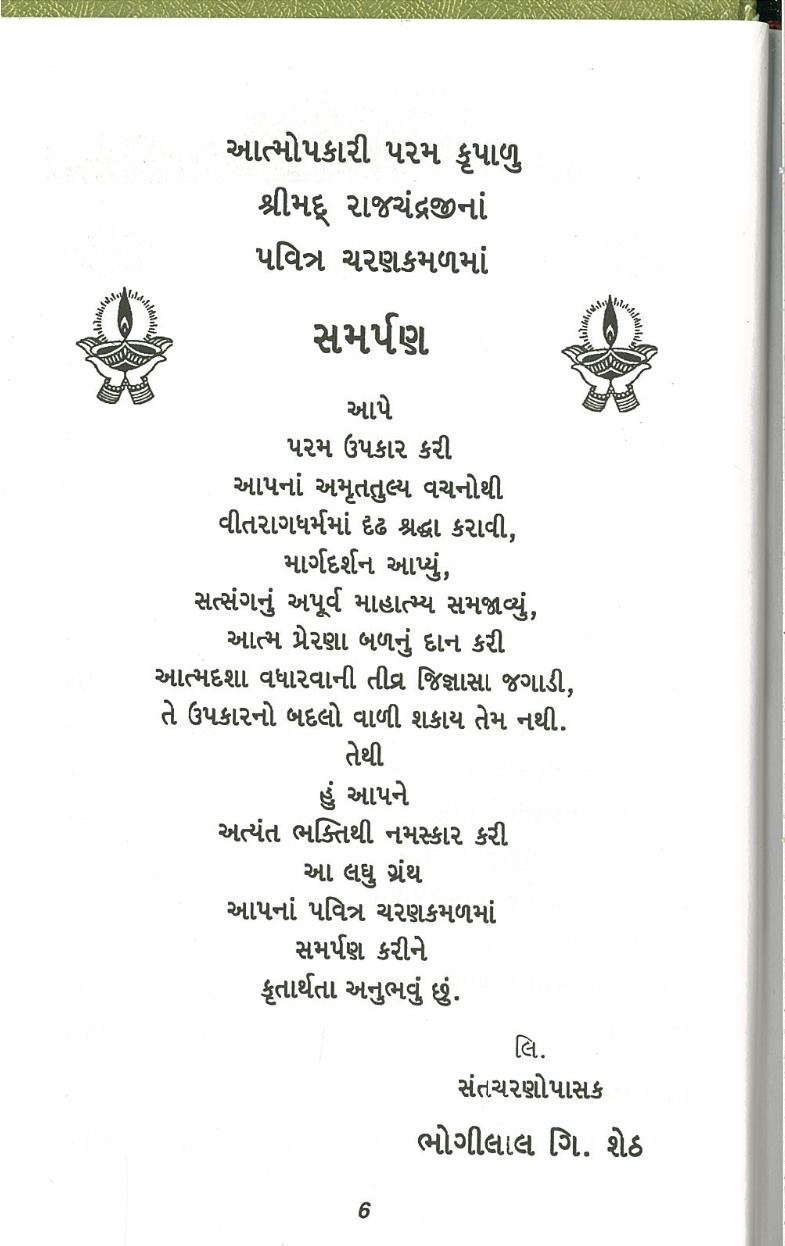 આત્મોપકારી પરમ કૃપાળુ
શ્રીમદ્ રાજચંદ્રજીનાં
પવિત્ર ચરણકમળમાં
સમર્પણ
આપે
પરમ ઉપકાર કરી
આપનાં અમૃતતુલ્ય વચનોથી
વીતરાગધર્મમાં દૃઢ શ્રદ્ધા કરાવી,
માર્ગદર્શન આપ્યું,
સત્સંગનું અપૂર્વ માહાત્મ્ય સમજાવ્યું,
આત્મ પ્રેરણા બળનું દાન કરી
આત્મદશા વધારવાની તીવ્ર જિજ્ઞાસા જગાડી,
તે ઉપકારનો બદલો વાળી શકાય તેમ નથી.
તેથી
હું આપને
અત્યંત ભક્તિથી નમસ્કાર કરી
આ લઘુ ગ્રંથ
આપનાં પવિત્ર ચરણકમળમાં
સમર્પણ કરીને
કૃતાર્થતા અનુભવું છું.
લિ.
સંતચરણોપાસક
ભોગીલાલ ગિ. શેઠ
6